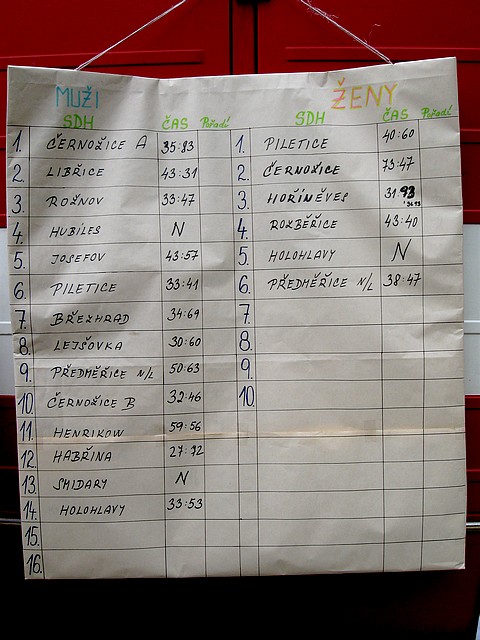 MUŽI ŽENY
SDH ČAS Pořadí SDH ČAS Pořadí
1. ČERNOŽICE A 35:83 1. PILETICE 40:60
2. LIBŘICE 43:31 2. ČERNOŽICE 73:47
3. ROŽNOV 33:47 3. HOŘINĚVES 31
4. HUBILES N 4. ROZBĚŘICE 43:40
5. JOSEFOV 43:57 5. HOLOHLAVY N
6. PILETICE 33:41 6. PŘEDMĚŘICE N/L 38:47
7. BŘEZHRAD 34:69 7.
8. LEJŠOVKA 30:60 8.
9. PŘEDMĚŘICE N/L 50:63 9.
10. ČERNOŽICE B 32:46 10.
11. HENRIKOW 59:56
12. HABŘINA 27:72
13. SMIDARY N
14. HOLOHLAVY 33:53
15.
16.